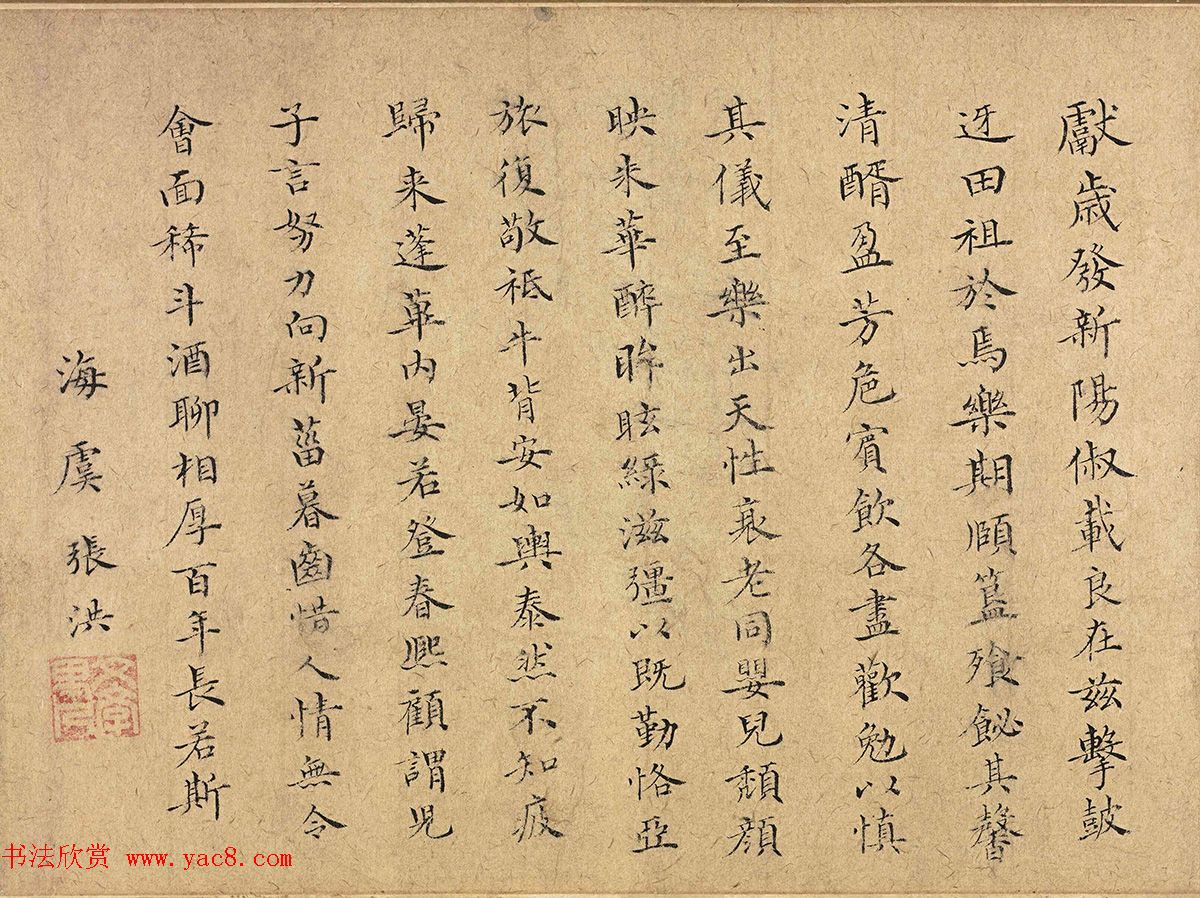 獻歲發新陽俶載良在兹擊鼓
迓田祖於焉樂期頤簋飱飶其馨
清醑盈芳卮賓飲各盡歡勉以慎
其儀至樂出天性衰老同嬰兒頳顔
映来華醉眸眩綠滋彊以既勤恪亞
旅復敬祗牛背安如輿泰然不知疲
歸来蓬蓽内晏若登春熙顧謂児
子言努力向新菑暮齒惜人情無令
會面稀斗酒聊相厚百年長若斯
海虞張洪
书法欣赏 www.yac8.com